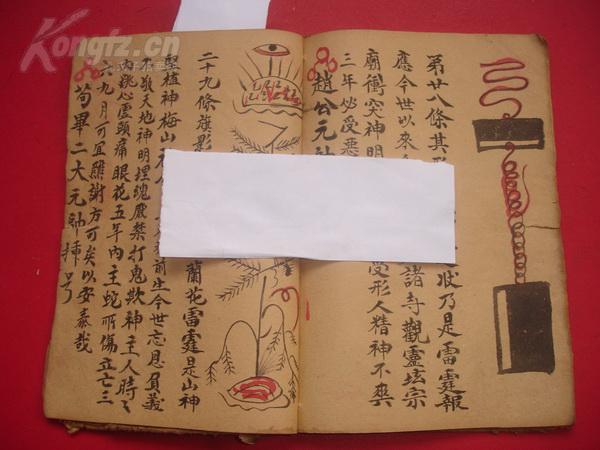 Kongfz.cn
第廿八條其形
狀乃是雷霆報
應今世以來
諸寺觀靈坛宗
廟衝突神明
受形人精神不爽
三年必受惡
趙公元帥
二十九條旗影
蘭花雷霆是山神
壇植神梅山
前生今世忘恩負義
不敬天地神明埋魂厭禁打鬼欺神主人時々
內跳心虛頭痛眼花五年內主蛇所傷立亡三
六九月可宜賽謝方可矣以安泰哉
苟畢二大元帥掃号